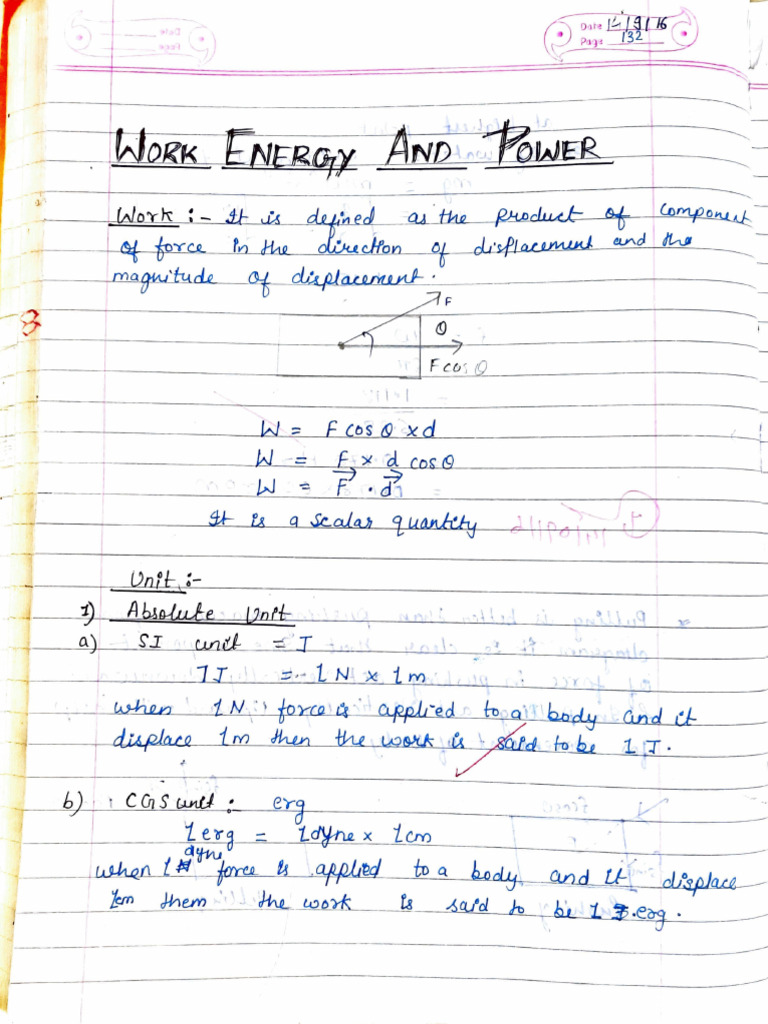 Date 14/9/16
Page 132
WORK ENERGY AND POWER
Work :- It is defined as the product of component
of force in the direction of displacement and the
magnitude of displacement.
F
θ
F cos θ
W = F cos θ x d
W = F x d cos θ
W = F⃗ . d⃗
It is a scalar quantity
Unit :-
1) Absolute Unit
a) SI unit = J
1 J = 1 N x 1 m
when 1 N force is applied to a body and it
displace 1m then the work is said to be 1 J.
b) CGS unit :- erg
1 erg = 1 dyne x 1 cm
when 1 dyne force is applied to a body and it displace
1cm them the work is said to be 1 erg.